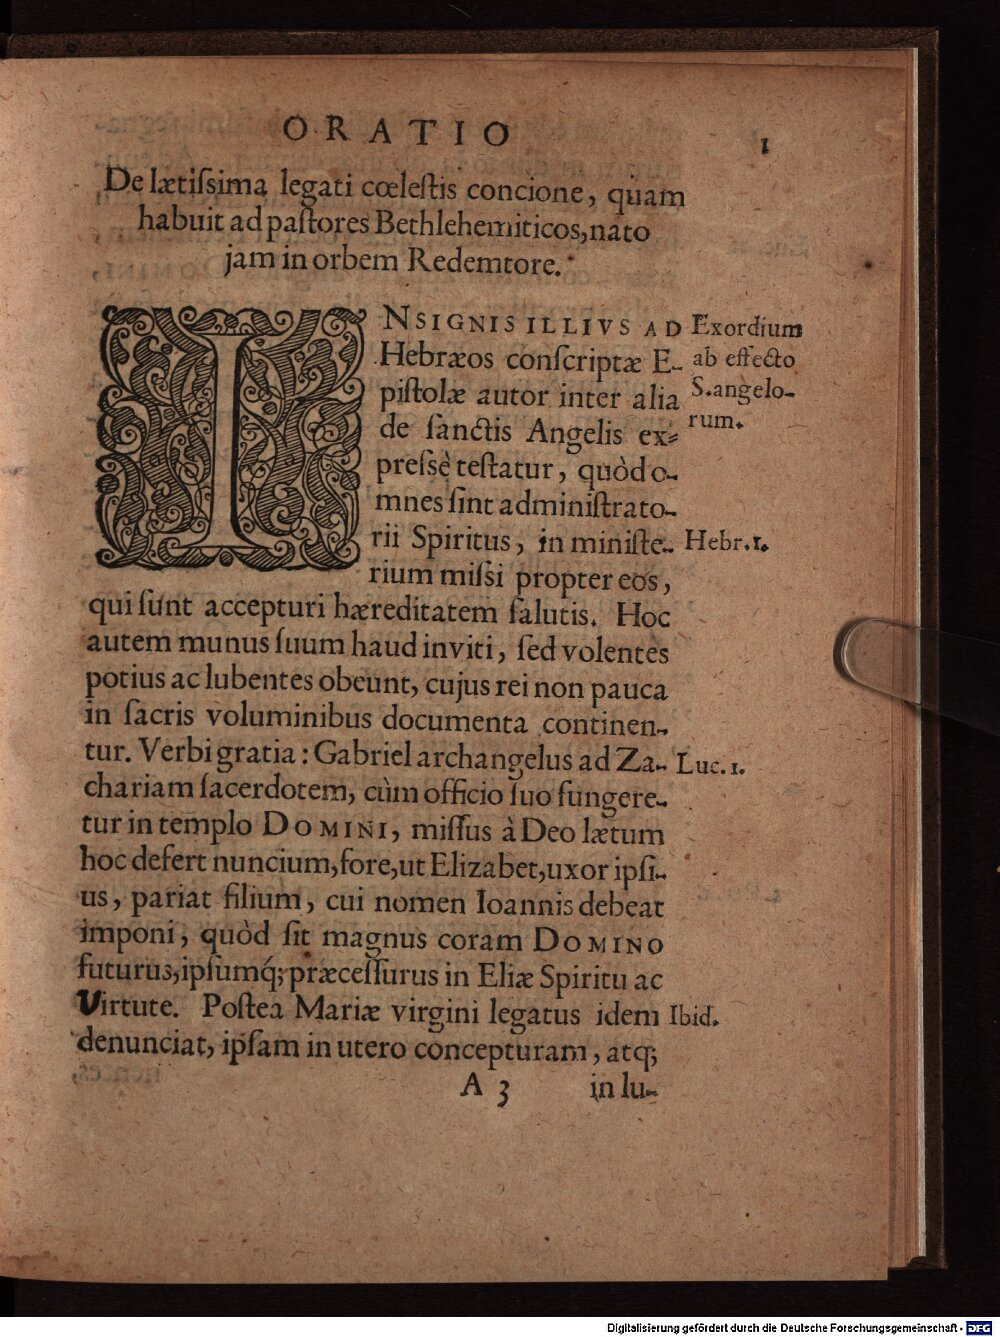 ORATIO
1
De lætiſsima legati cœleſtis concione, quam
habuit ad paſtores Bethlehemiticos, nato
jam in orbem Redemtore.
INSIGNIS ILLIVS AD
Hebræos conſcriptæ E-
piſtolæ autor inter alia
de ſanctis Angelis ex-
preſsè teſtatur, quòd o-
mnes ſint adminiſtrato-
rii Spiritus, in miniſte-
rium miſsi propter eos,
qui ſunt accepturi hæreditatem ſalutis. Hoc
autem munus ſuum haud inviti, ſed volentes
potius ac lubentes obeunt, cujus rei non pauca
in ſacris voluminibus documenta continen-
tur. Verbi gratia: Gabriel archangelus ad Za-
chariam ſacerdotem, cùm officio ſuo fungere-
tur in templo DOMINI, miſſus à Deo lætum
hoc defert nuncium, fore, ut Elizabet, uxor ipſi-
us, pariat filium, cui nomen Ioannis debeat
imponi, quòd ſit magnus coram DOMINO
futurus, ipſumq́; præceſſurus in Eliæ Spiritu ac
Virtute. Poſtea Mariæ virgini legatus idem
denunciat, ipſam in utero concepturam, atq;
A 3
in lu-
Exordium
ab effecto
S. angelo-
rum.
Hebr. 1.
Luc. 1.
Ibid.
Digitalisierung gefördert durch die Deutsche Forschungsgemeinschaft - DFG